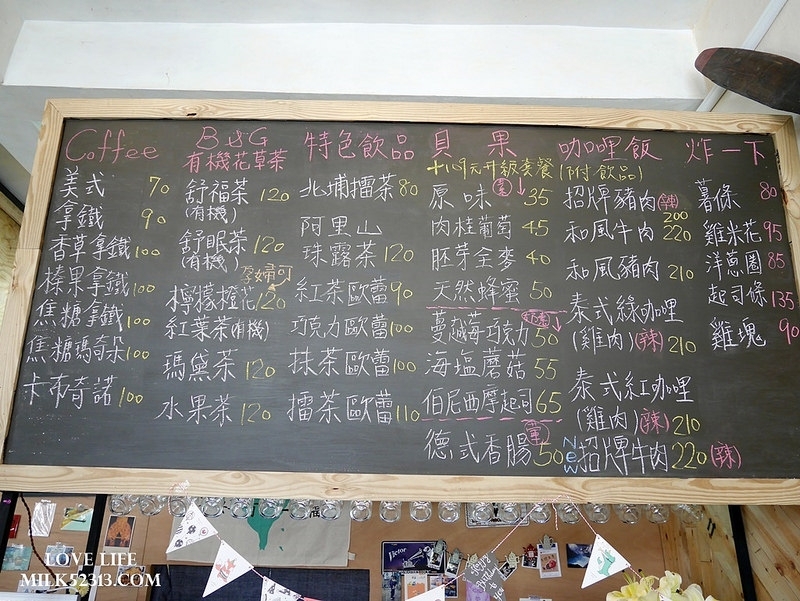 Coffee
美式 70
拿鐵 90
香草拿鐵 100
榛果拿鐵 100
焦糖拿鐵 100
焦糖瑪奇朵 100
卡布奇諾 100
B&G
有機花草茶
舒福茶 120
(有機)
舒眠茶 120
(有機)
孕婦可
檸檬橙花 120
紅葉茶(有機)
瑪黛茶 120
水果茶 120
特色飲品
北埔擂茶 80
阿里山
珠露茶 120
紅茶歐蕾 90
巧克力歐蕾 100
抹茶歐蕾 100
擂茶歐蕾 110
貝果
十119元升級套餐(附飲品)
原味 35
肉桂葡萄 45
胚芽全麥 40
天然蜂蜜 50
蔓越莓巧克力 50
海塩蘑菇 55
伯尼西摩起司 65
德式香腸 50
咖哩飯
招牌豬肉(辣) 200
和風牛肉 220
和風豬肉 210
泰式綠咖哩
(雞肉)(辣) 210
泰式紅咖哩
(雞肉)(辣) 210
New 招牌牛肉 220 (辣)
炸一下
薯條 80
雞米花 95
洋蔥圈 85
起司條 135
雞塊 90
LOVE LIFE
MILK52313.COM